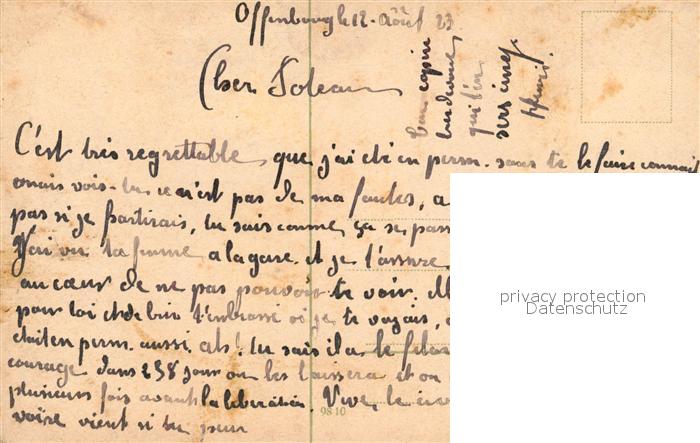 Offenbourg le 12 - Août 23
Cher Poleau
C'est très regrettable que j'ai été en perm. sans te le faire connait
mais vois-tu ce n'est pas de ma faute, a
pas si je partirais, tu sais comme ça se pass
J'ai vu ta femme a la gare. et je t'assure
au cœur de ne pas pouvoir te voir.
pour toi et de bien t'embrasse si je te voyais,
était en perm. aussi. ah! tu sais il a le
courage dans 258 jour on les laissera et on
plusieurs fois avant la libération. Vive, le
voire vient si tu peux
Ton copin
qui t'en
serre
Henri.
9810
privacy protection
Datenschutz